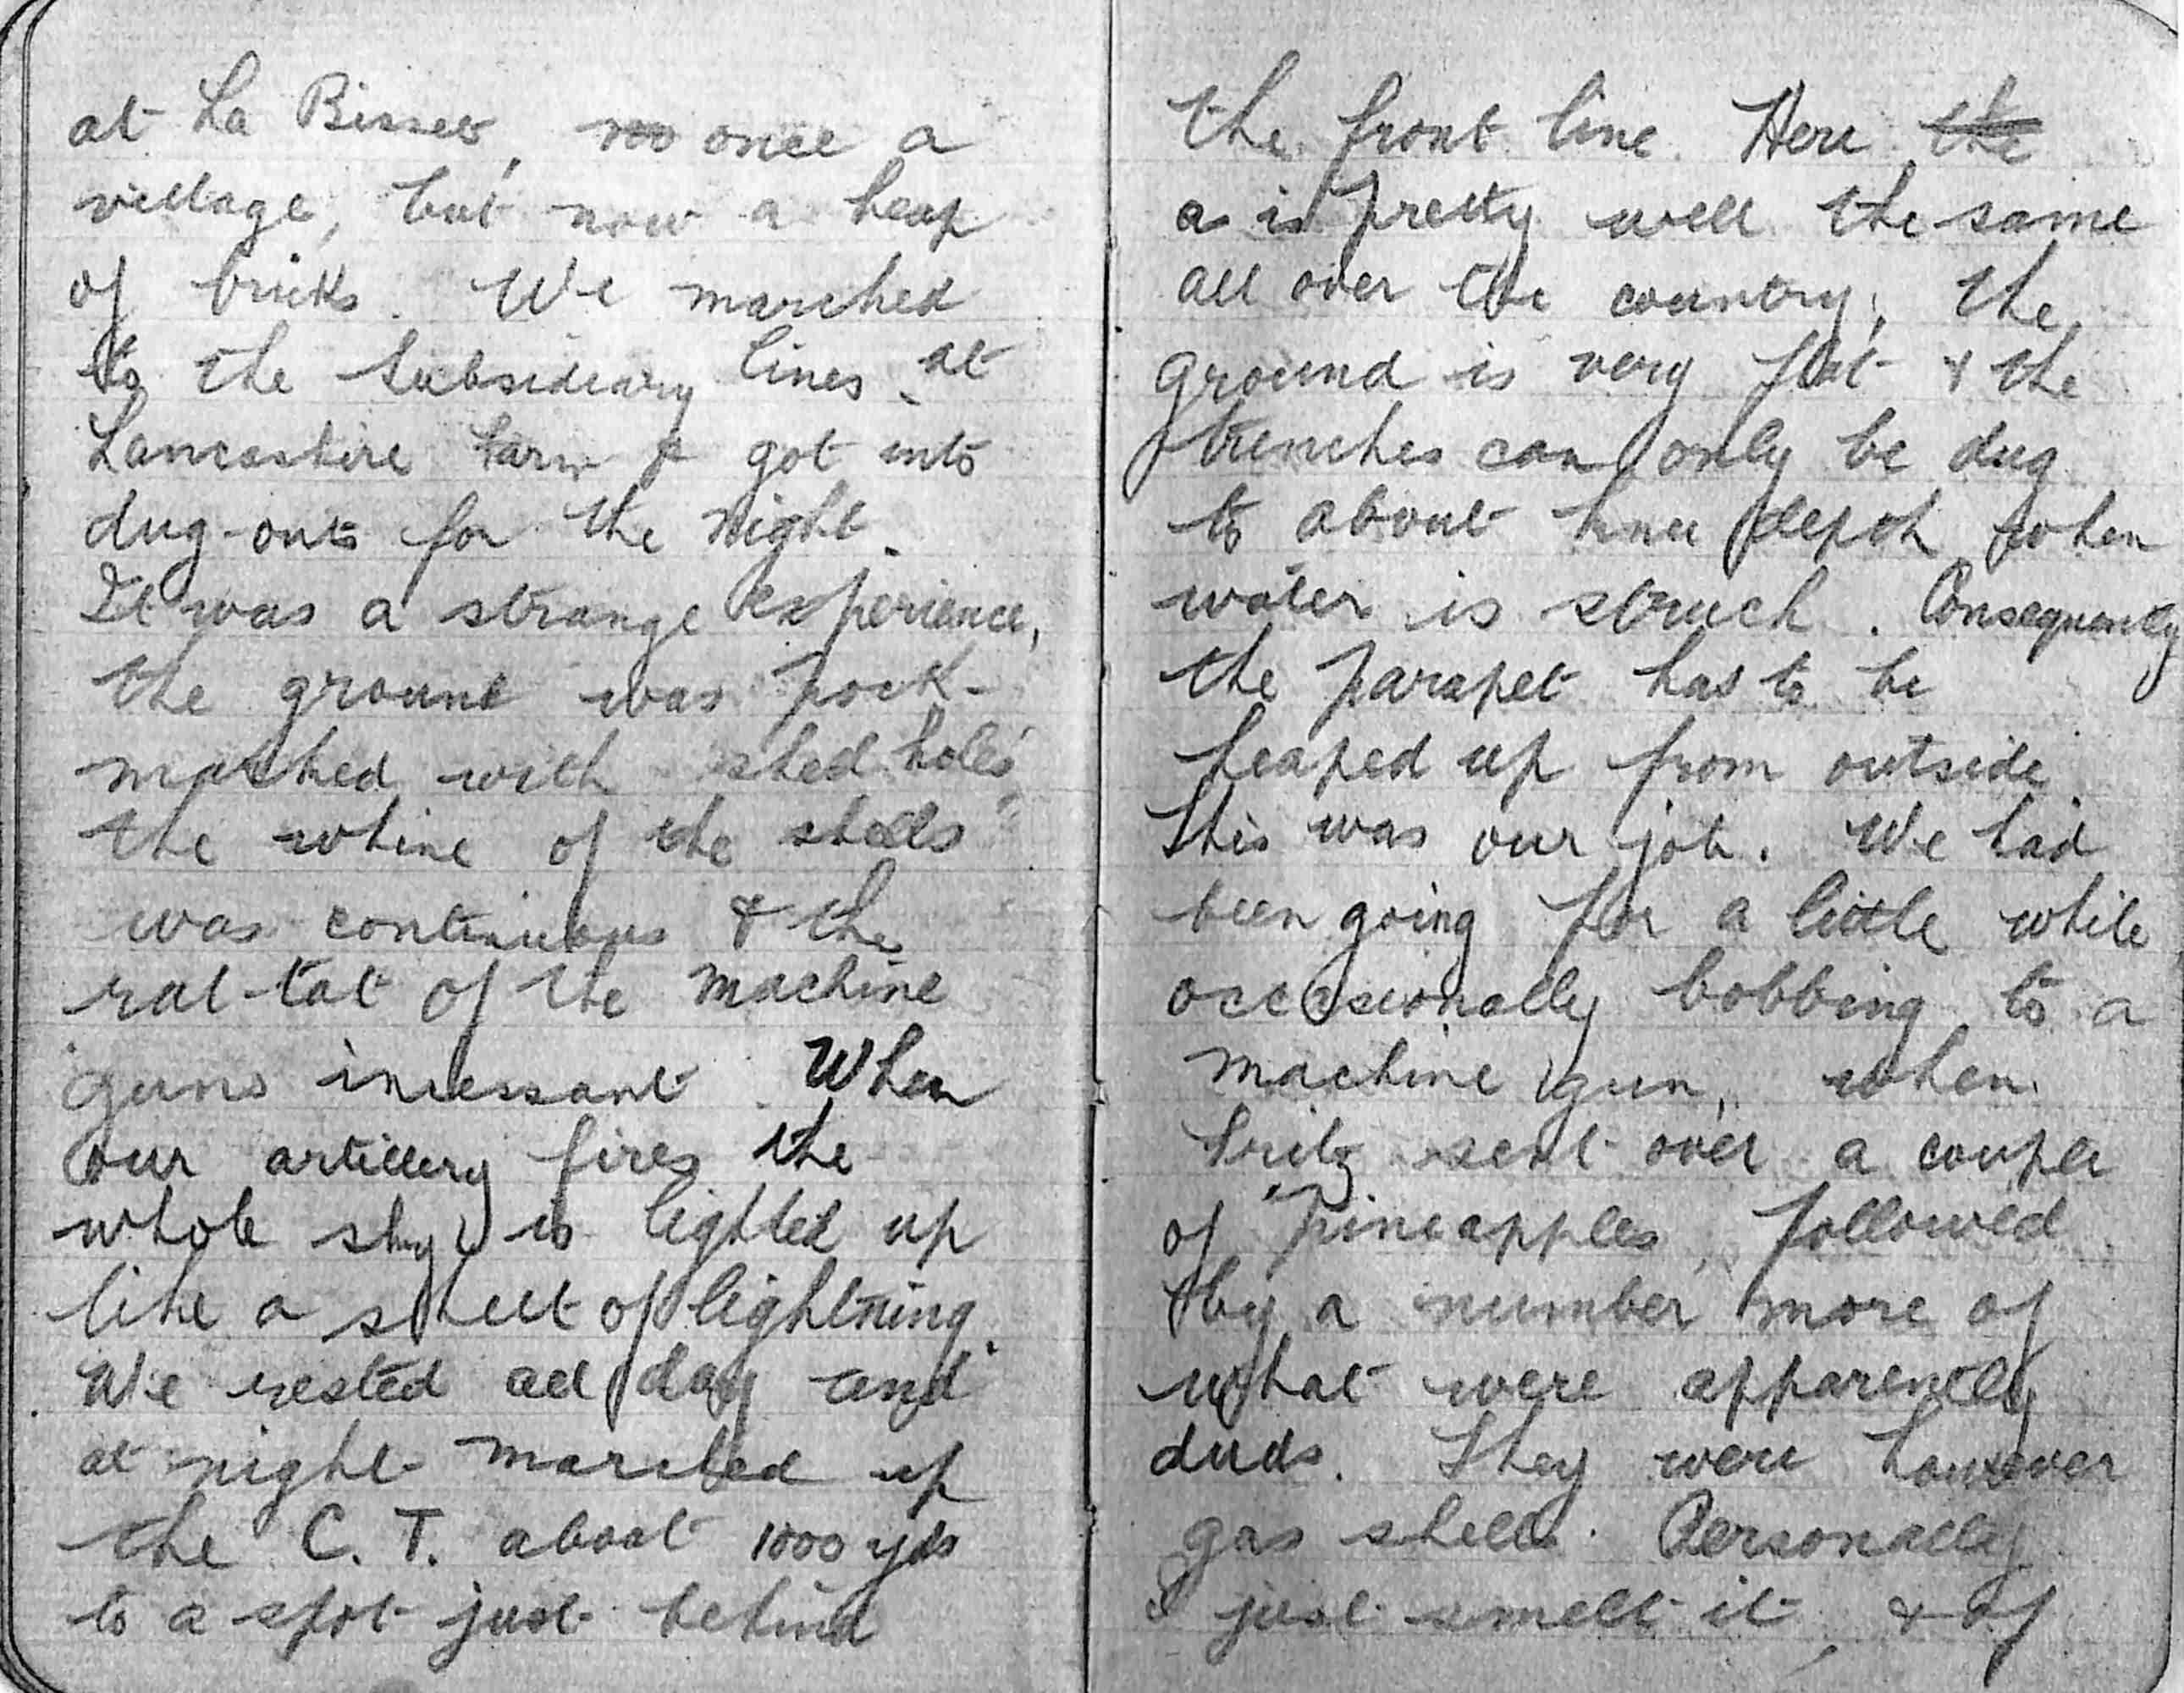 at La Bisset, once a
village, but now a heap
of bricks. We marched
to the Subsidiary lines at
Lancashire Farm & got into
dug-outs for the night.
It was a strange experience,
the ground was pock-
marked with shell holes,
the whine of the shells
was continuous & the
rat-tat of the machine
guns incessant. When
our artillery fires the
whole sky is lighted up
like a sheet of lightning.
We rested all day and
at night marched up
the C.T. about 1000 yds
to a spot just behind
the front line. Here the
a is pretty well the same
all over the country, the
ground is very flat & the
trenches can only be dug
to about knee depth when
water is struck. Consequently
the parapet has to be
heaped up from outside.
This was our job. We had
been going for a little while
occasionally bobbing to a
machine gun, when
Fritz sent over a couple
of "pineapples, followed
by a number more of
what were apparently
duds. They were however
gas shells. Personally
I just smelt it, & of